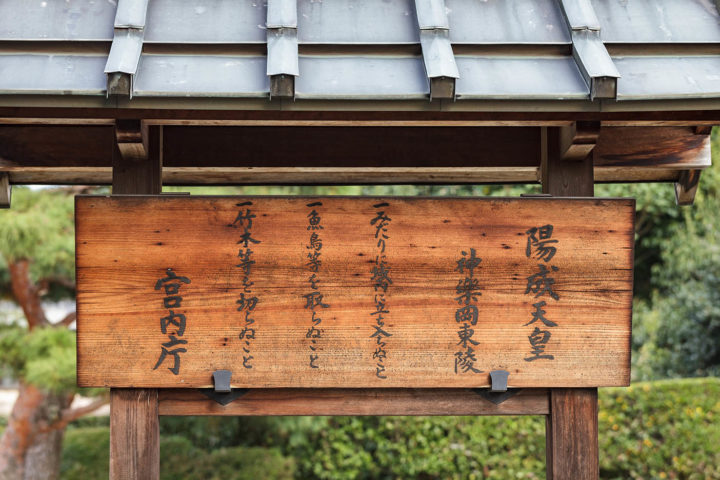 陽成天皇
神楽岡東陵
一みだりに域内に立ち入らぬこと
一魚鳥等を取らぬこと
一竹木等を切らぬこと
宮内庁